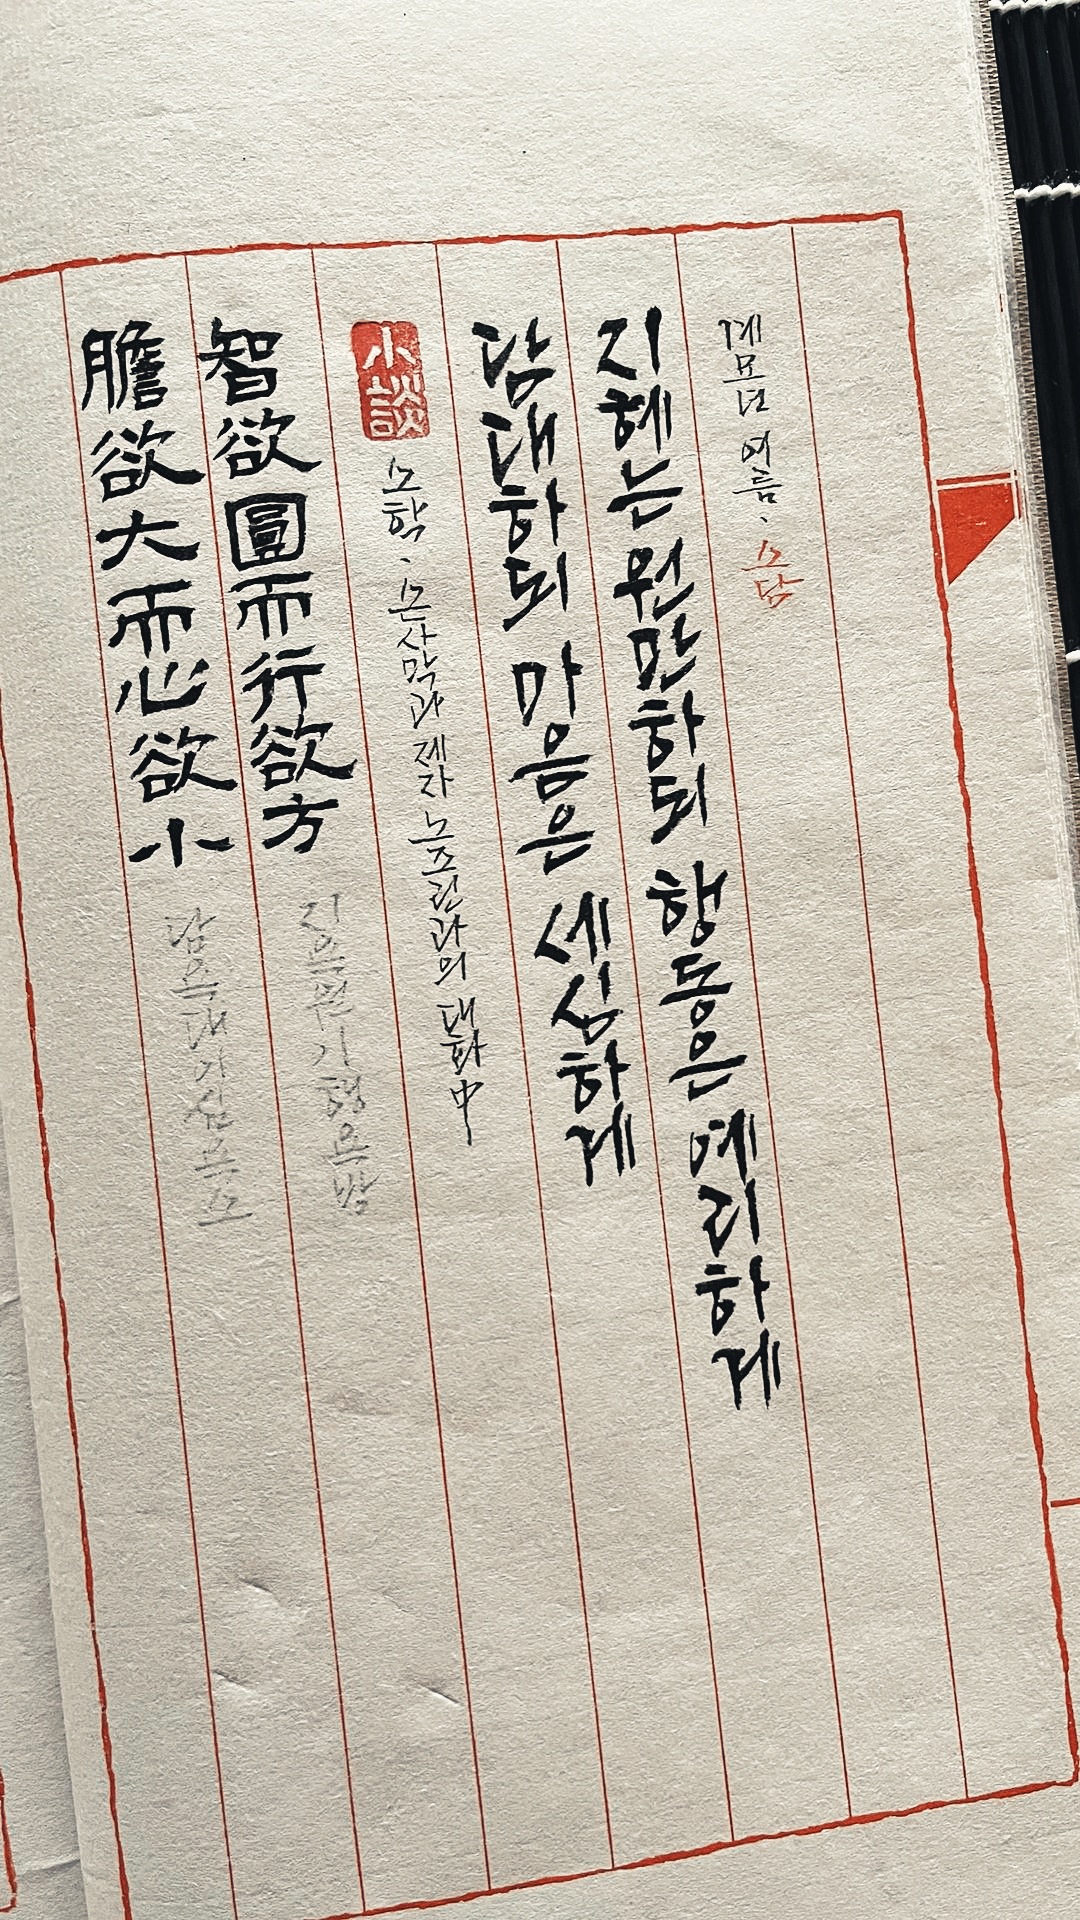 계묘년 여름 · 소담
지혜는 원만하되 행동은 예리하게
담대하되 마음은 세심하게
小談
소학 · 손사막과 제자 노조린과의 대화 中
智欲圓而行欲方
지욕원이행욕방
膽欲大而心欲小
담욕대이심욕소